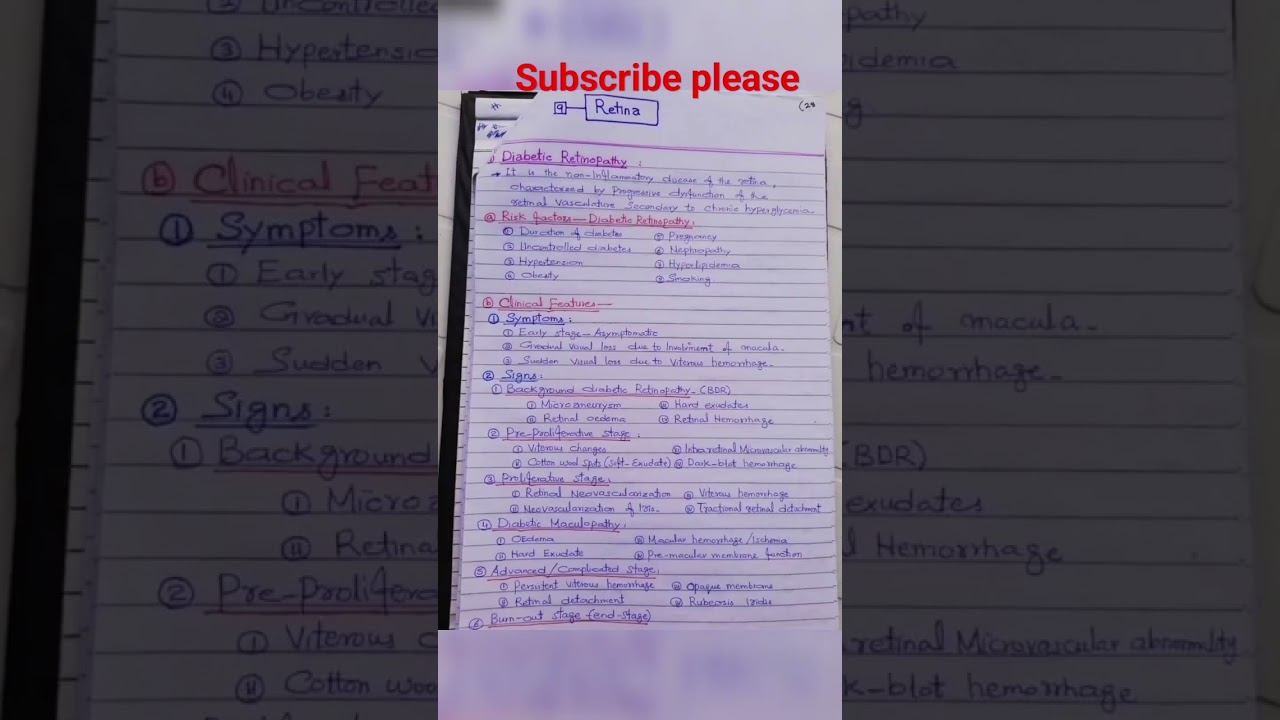 Subscribe please
9 Retina
(28
1) Diabetic Retinopathy :
→ It is the non-Inflammatory disease of the retina,
characterized by Progressive dysfunction of the
retinal vasculature Secondary to chronic hyperglycemia.
ⓐ Risk factors — Diabetic Retinopathy:
① Duration of diabetes ⑤ Pregnancy
② Uncontrolled diabetes ⑥ Nephropathy
③ Hypertension ⑦ Hyperlipidemia
④ Obesity ⑧ Smoking
ⓑ Clinical Features —
① Symptoms :
① Early stage — Asymptomatic
② Gradual visual loss due to Involvment of macula.
③ Sudden Visual loss due to Viterous hemorrhage.
② Signs:
① Background diabetic Retinopathy - (BDR)
ⓘ Microaneurysm ⓘⓘⓘ Hard exudates
ⓘⓘ Retinal oedema ⓘⓥ Retinal Hemorrhage
② Pre-Proliferative stage :
ⓘ Viterous changes ⓘⓘⓘ Intraretinal Microvascular abnormality
ⓘⓘ Cotton wool Spots (Soft-Exudate) ⓘⓥ Dark-blot hemorrhage
③ Proliferative stage:
ⓘ Retinal Neovascularization ⓘⓘⓘ Viterous hemorrhage
ⓘⓘ Neovascularization of Iris. ⓘⓥ Tractional retinal detachment
④ Diabetic Maculopathy:
ⓘ OEdema ⓘⓘⓘ Macular hemorrhage / Ischemia
ⓘⓘ Hard Exudate ⓘⓥ Pre-macular membrane function
⑤ Advanced / Complicated Stage:
ⓘ Persistent viterous hemorrhage ⓘⓘⓘ Opaque membrane
ⓘⓘ Retinal detachment ⓘⓥ Rubeosis Iridis
⑥ Burn-out stage (end-stage)